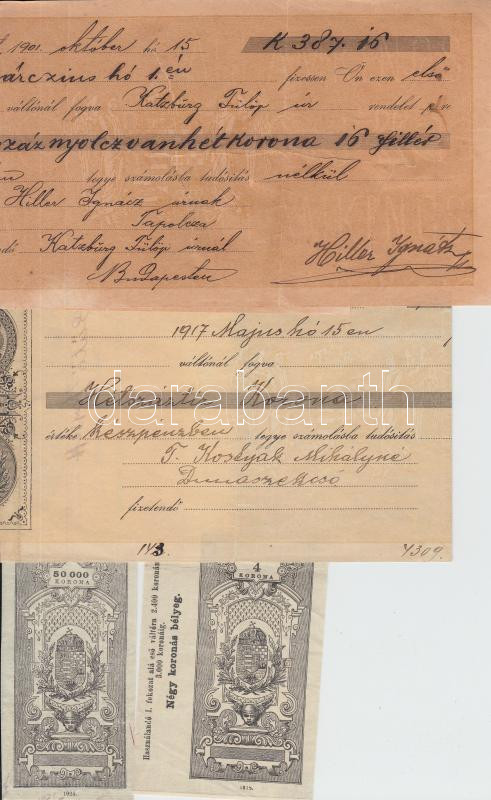 1901. október hó 15 K 387.16
árczius hó 1.én fizessen Ön ezen első
váltónál fogva Katzburg Fülöp úr rendelet
száznyolczvanhétkorona 16 fillér
tegye számolásba tudósítás nélkül
Hiller Ignácz úrnak
Tapolcza
Katzburg Fülöp úrnál Hiller Ignátz
Budapesten
1917 Majus hó 15 en
váltónál fogva
darabanth
Hétszáztíz Korona
értéke készpénzben tegye számolásba tudósítás
T. Mihályné
fizetendő
4309.
50 000
KORONA
1924.
Használandó I. fokozat alá eső váltóra 2.400 koronás
3.000 koronáig.
Négy koronás bélyeg.
4
KORONA